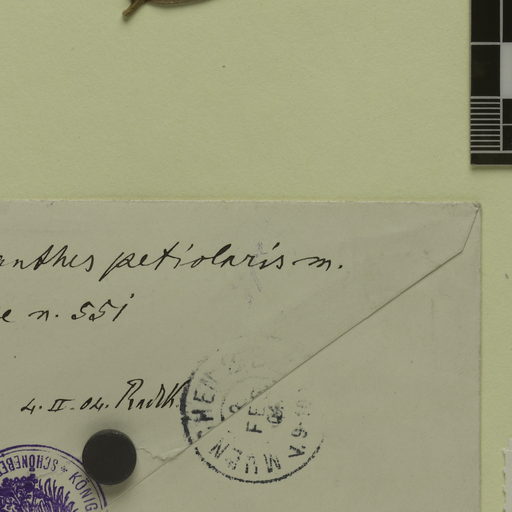 anthes petiolaris m.
e n. 551
4. II. 04.
MUENCHEN
FE
SCHÖNEBE
KÖNIG